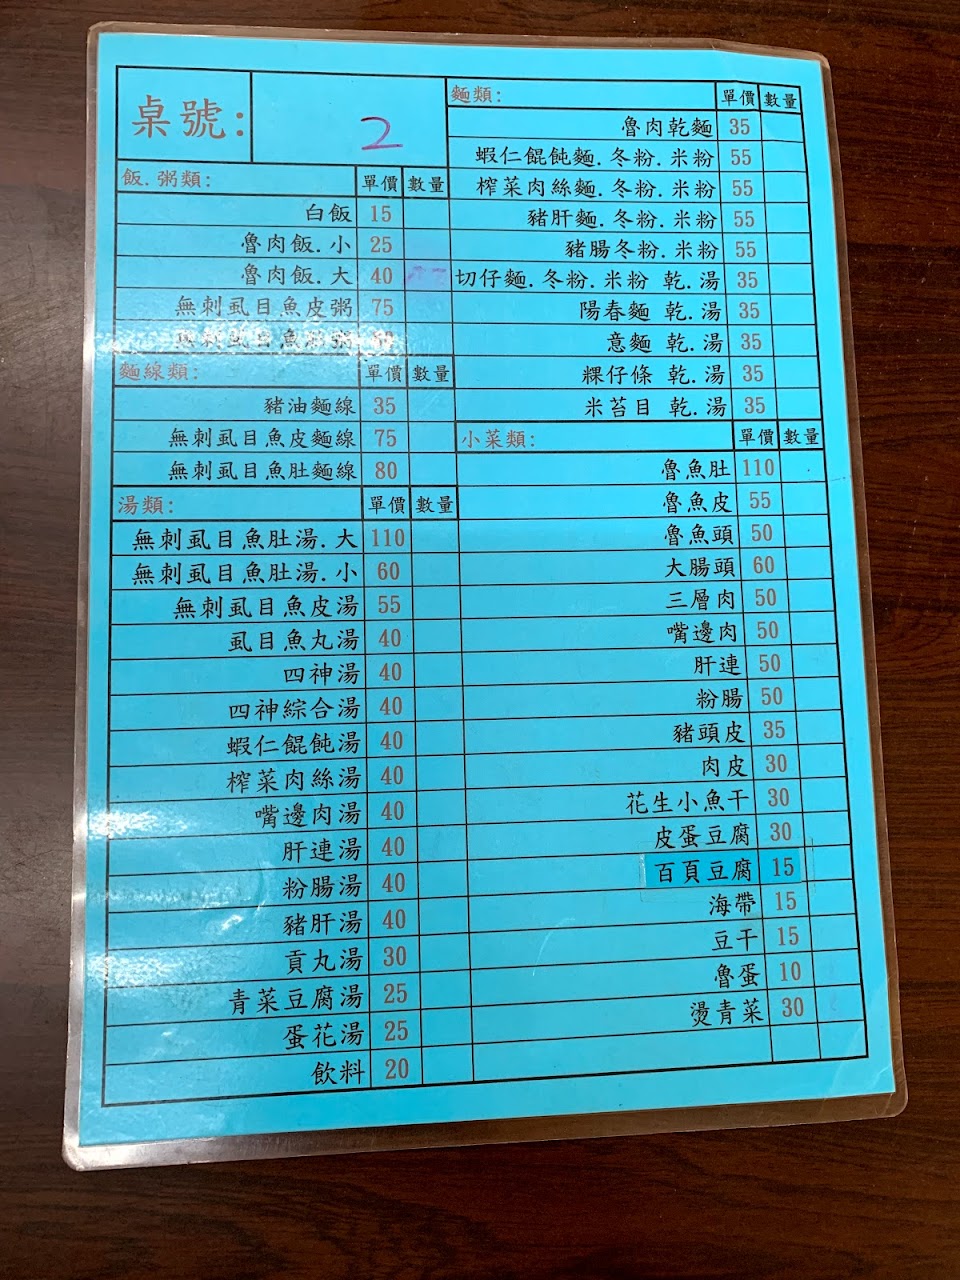 桌號: 2
飯.粥類: 單價 數量
白飯 15
魯肉飯.小 25
魯肉飯.大 40
無刺虱目魚皮粥 75
無刺虱目魚
麵線類: 單價 數量
豬油麵線 35
無刺虱目魚皮麵線 75
無刺虱目魚肚麵線 80
湯類: 單價 數量
無刺虱目魚肚湯.大 110
無刺虱目魚肚湯.小 60
無刺虱目魚皮湯 55
虱目魚丸湯 40
四神湯 40
四神綜合湯 40
蝦仁餛飩湯 40
榨菜肉絲湯 40
嘴邊肉湯 40
肝連湯 40
粉腸湯 40
豬肝湯 40
貢丸湯 30
青菜豆腐湯 25
蛋花湯 25
飲料 20
麵類: 單價 數量
魯肉乾麵 35
蝦仁餛飩麵.冬粉.米粉 55
榨菜肉絲麵.冬粉.米粉 55
豬肝麵.冬粉.米粉 55
豬腸冬粉.米粉 55
切仔麵.冬粉.米粉 乾.湯 35
陽春麵 乾.湯 35
意麵 乾.湯 35
粿仔條 乾.湯 35
米苔目 乾.湯 35
小菜類: 單價 數量
魯魚肚 110
魯魚皮 55
魯魚頭 50
大腸頭 60
三層肉 50
嘴邊肉 50
肝連 50
粉腸 50
豬頭皮 35
肉皮 30
花生小魚干 30
皮蛋豆腐 30
百頁豆腐 15
海帶 15
豆干 15
魯蛋 10
燙青菜 30